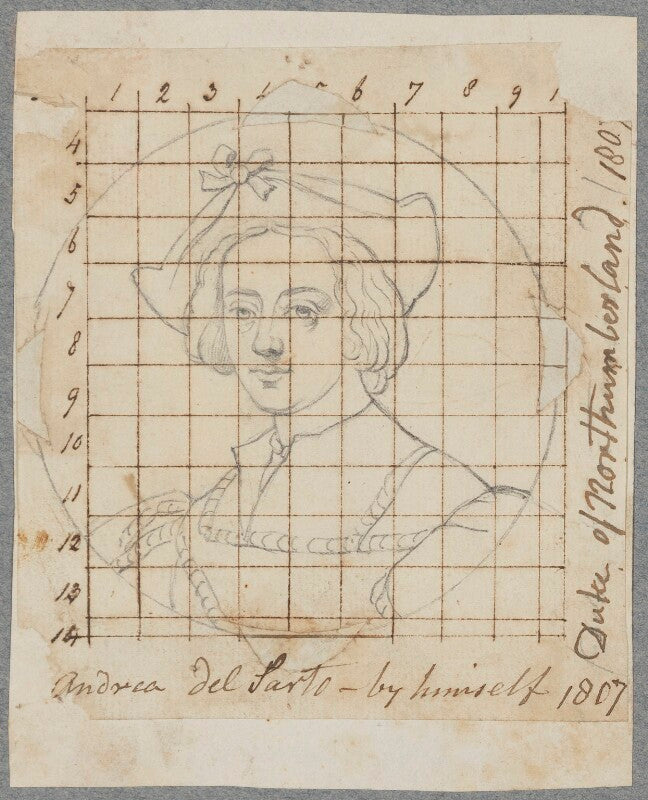 1 2 3 4 5 6 7 8 9 1
4
5
6
7
8
9
10
11
12
13
14
andrea del Sarto – by himself 1807
Duke of Northumberland. / 180